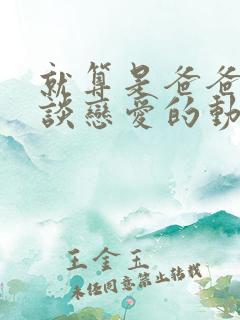 就算是爸爸
談戀愛的動
王金玉
未經同意禁止轉載